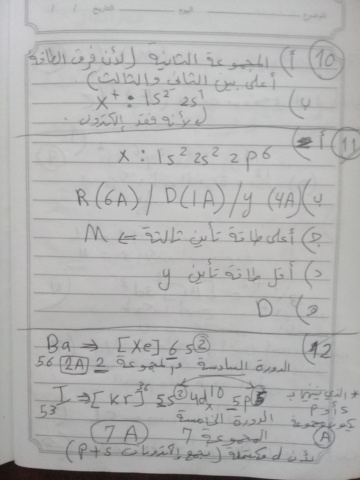 الموضوع اليوم التاريخ
10) أ) المجموعة الثانية (لأن فرق الطاقة
أعلى بين الثاني والثالث)
ب) X⁺ : 1s² 2s¹
لأنه فقد إلكترون.
11) أ)
X : 1s² 2s² 2p⁶
ب) R(6A) / D(1A) / y (4A)
ج) أعلى طاقة تأين ثالثة ⇐ M
د) أقل طاقة تأين y
D
12) Ba ⇒ [Xe] 6s²
56 2A الدورة السادسة والمجموعة 2
I ⇒ [Kr]³⁶ 5s² 4d¹⁰ 5p⁵
53 الدورة الخامسة
7A المجموعة 7
لأن d مكتملة (نجمع إلكترونات P+S)
P أو S
A